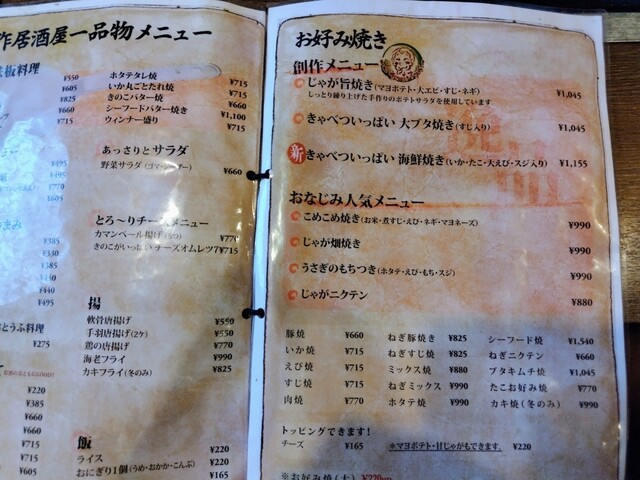 作居酒屋一品物メニュー
鉄板料理
¥550
¥605
¥825
¥660
¥715
ホタテタレ焼 ¥715
いか丸ごとたれ焼 ¥715
きのこバター焼 ¥660
シーフードバター焼き ¥1,100
ウィンナー盛り ¥715
あっさりとサラダ
野菜サラダ ¥660
¥495
¥495
¥770
¥605
とろ〜りチーズメニュー
カマンベール揚げ ¥770
きのこがいっぱいチーズオムレツ ¥715
¥385
¥330
¥385
¥440
¥440
¥495
とうふ料理
¥275
揚
軟骨唐揚げ ¥550
手羽唐揚げ(2ケ) ¥550
鶏の唐揚げ ¥770
海老フライ ¥990
カキフライ(冬のみ) ¥825
¥220
¥385
¥660
¥660
¥715
¥715
¥605
飯
ライス ¥220
おにぎり1個(うめ・おかか・こんぶ) ¥220
¥165
お好み焼き
創作メニュー
じゃが旨焼き(マヨポテト・大エビ・すじ・ネギ) ¥1,045
しっとり練り上げた手作りのポテトサラダを使用しています
きゃべついっぱい 大ブタ焼き(すじ入り) ¥1,045
新 きゃべついっぱい 海鮮焼き(いか・たこ・大えび・スジ入り) ¥1,155
おなじみ人気メニュー
こめこめ焼き(お米・煮すじ・えび・ネギ・マヨネーズ) ¥990
じゃが畑焼き ¥990
うさぎのもちつき(ホタテ・えび・もち・スジ) ¥990
じゃがニクテン ¥880
豚焼 ¥660 ねぎ豚焼き ¥825 シーフード焼 ¥1,540
いか焼 ¥715 ねぎすじ焼 ¥825 ねぎニクテン ¥660
えび焼 ¥715 ミックス焼 ¥880 ブタキムチ焼 ¥1,045
すじ焼 ¥715 ねぎミックス ¥990 たこお好み焼 ¥770
肉焼 ¥770 ホタテ焼 ¥990 カキ焼(冬のみ) ¥990
トッピングできます!
チーズ ¥165 ※マヨポテト・甘じゃがもできます。 ¥220
※お好み焼(大) ¥220up